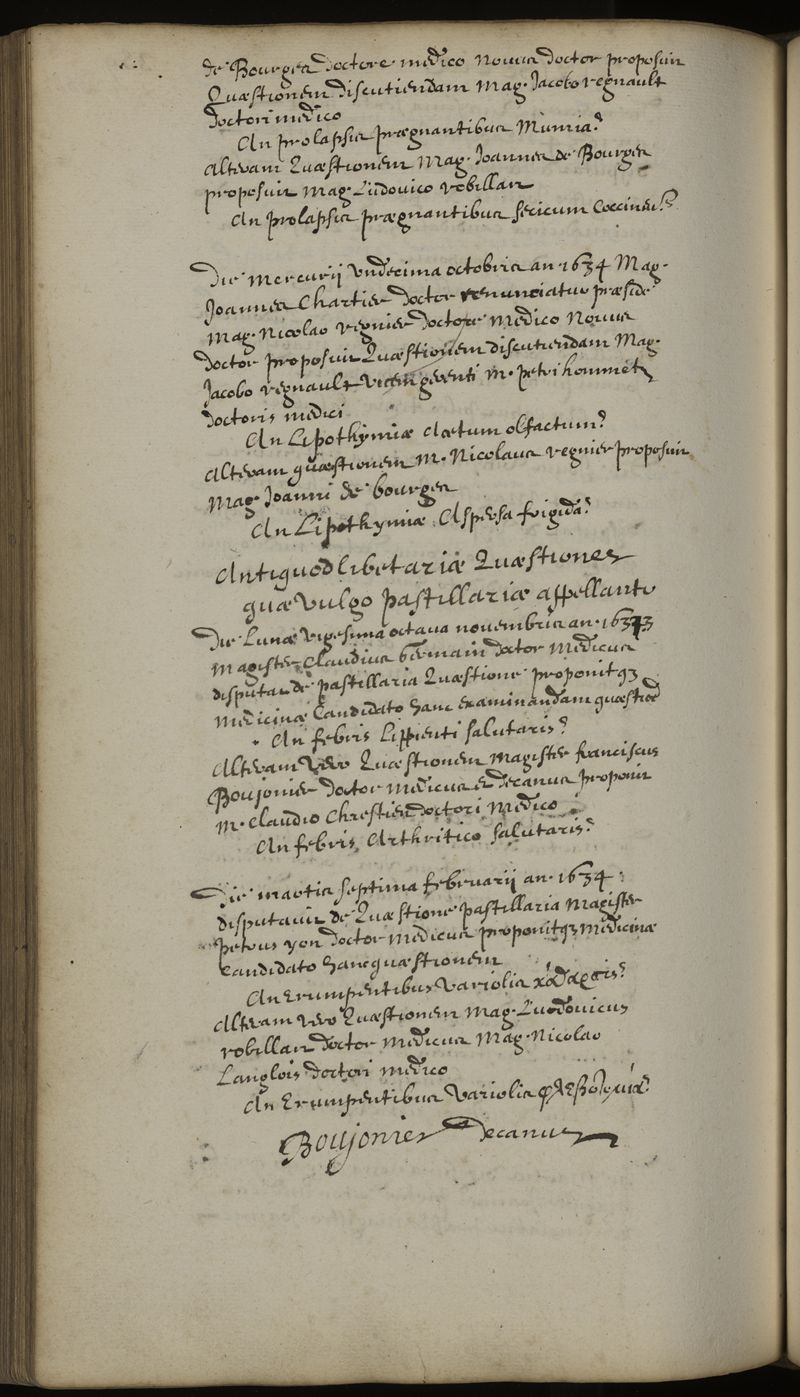 de Bourges doctore medico novus doctor proposuit
Quæstionem discutiendam Mag. Jacobo regnault
doctori medico
An prolapsis prægnantibus Mumia?
Alteram Quæstionem Mag. Joannes de Bourges
proposuit Mag. Ludovico robillart
An prolapsis prægnantibus sericum coccineum?
Die Mercurij undecima octobris an. 1634 Mag.
Joannes Chartier doctor renunciatus præside
Mag. Nicolao regnier doctore medico Novus
doctor proposuit Quæstionem discutiendam Mag.
Jacobo regnault vicem gerenti M. petri hommetz
doctoris medici
An Lipothymiæ Acetum olfactum?
Alteram quæstionem M. Nicolaus regnier proposuit
Mag. Joanni de bourges
An Lipothymiæ Aspersa frigida?
Antiquodlibetariæ Quæstiones
quæ vulgo pastillariæ appellantur
Die Lunæ vigesima octava novembris an. 1633
Magister Claudius Germain doctor Medicus
disputat de pastillaria Quæstione proponitq3
medicinæ Candidato hanc examinandam quæstioē
An febris Lippienti salutaris?
Alteram vero Quæstionem Magister franciscus
Boujonier doctor medicus et decanus proponit
M. Claudio Chrestien doctori Medico
An febris Arthritico salutaris?
Die martis septima februarij an. 1634
disputavit de Quæstione pastillaria Magister
petrus yon doctor Medicus proponitq3 Medicinæ
Candidato hanc quæstionem
An Erumpentibus variolis κάθαρσις?
Alteram vero Quæstionem Mag. Ludovicus
robillart doctor medicus Mag. Nicolao
Langlois doctori medico
An Erumpentibus Variolis φλεβοτομία?
Boujonier Decanus